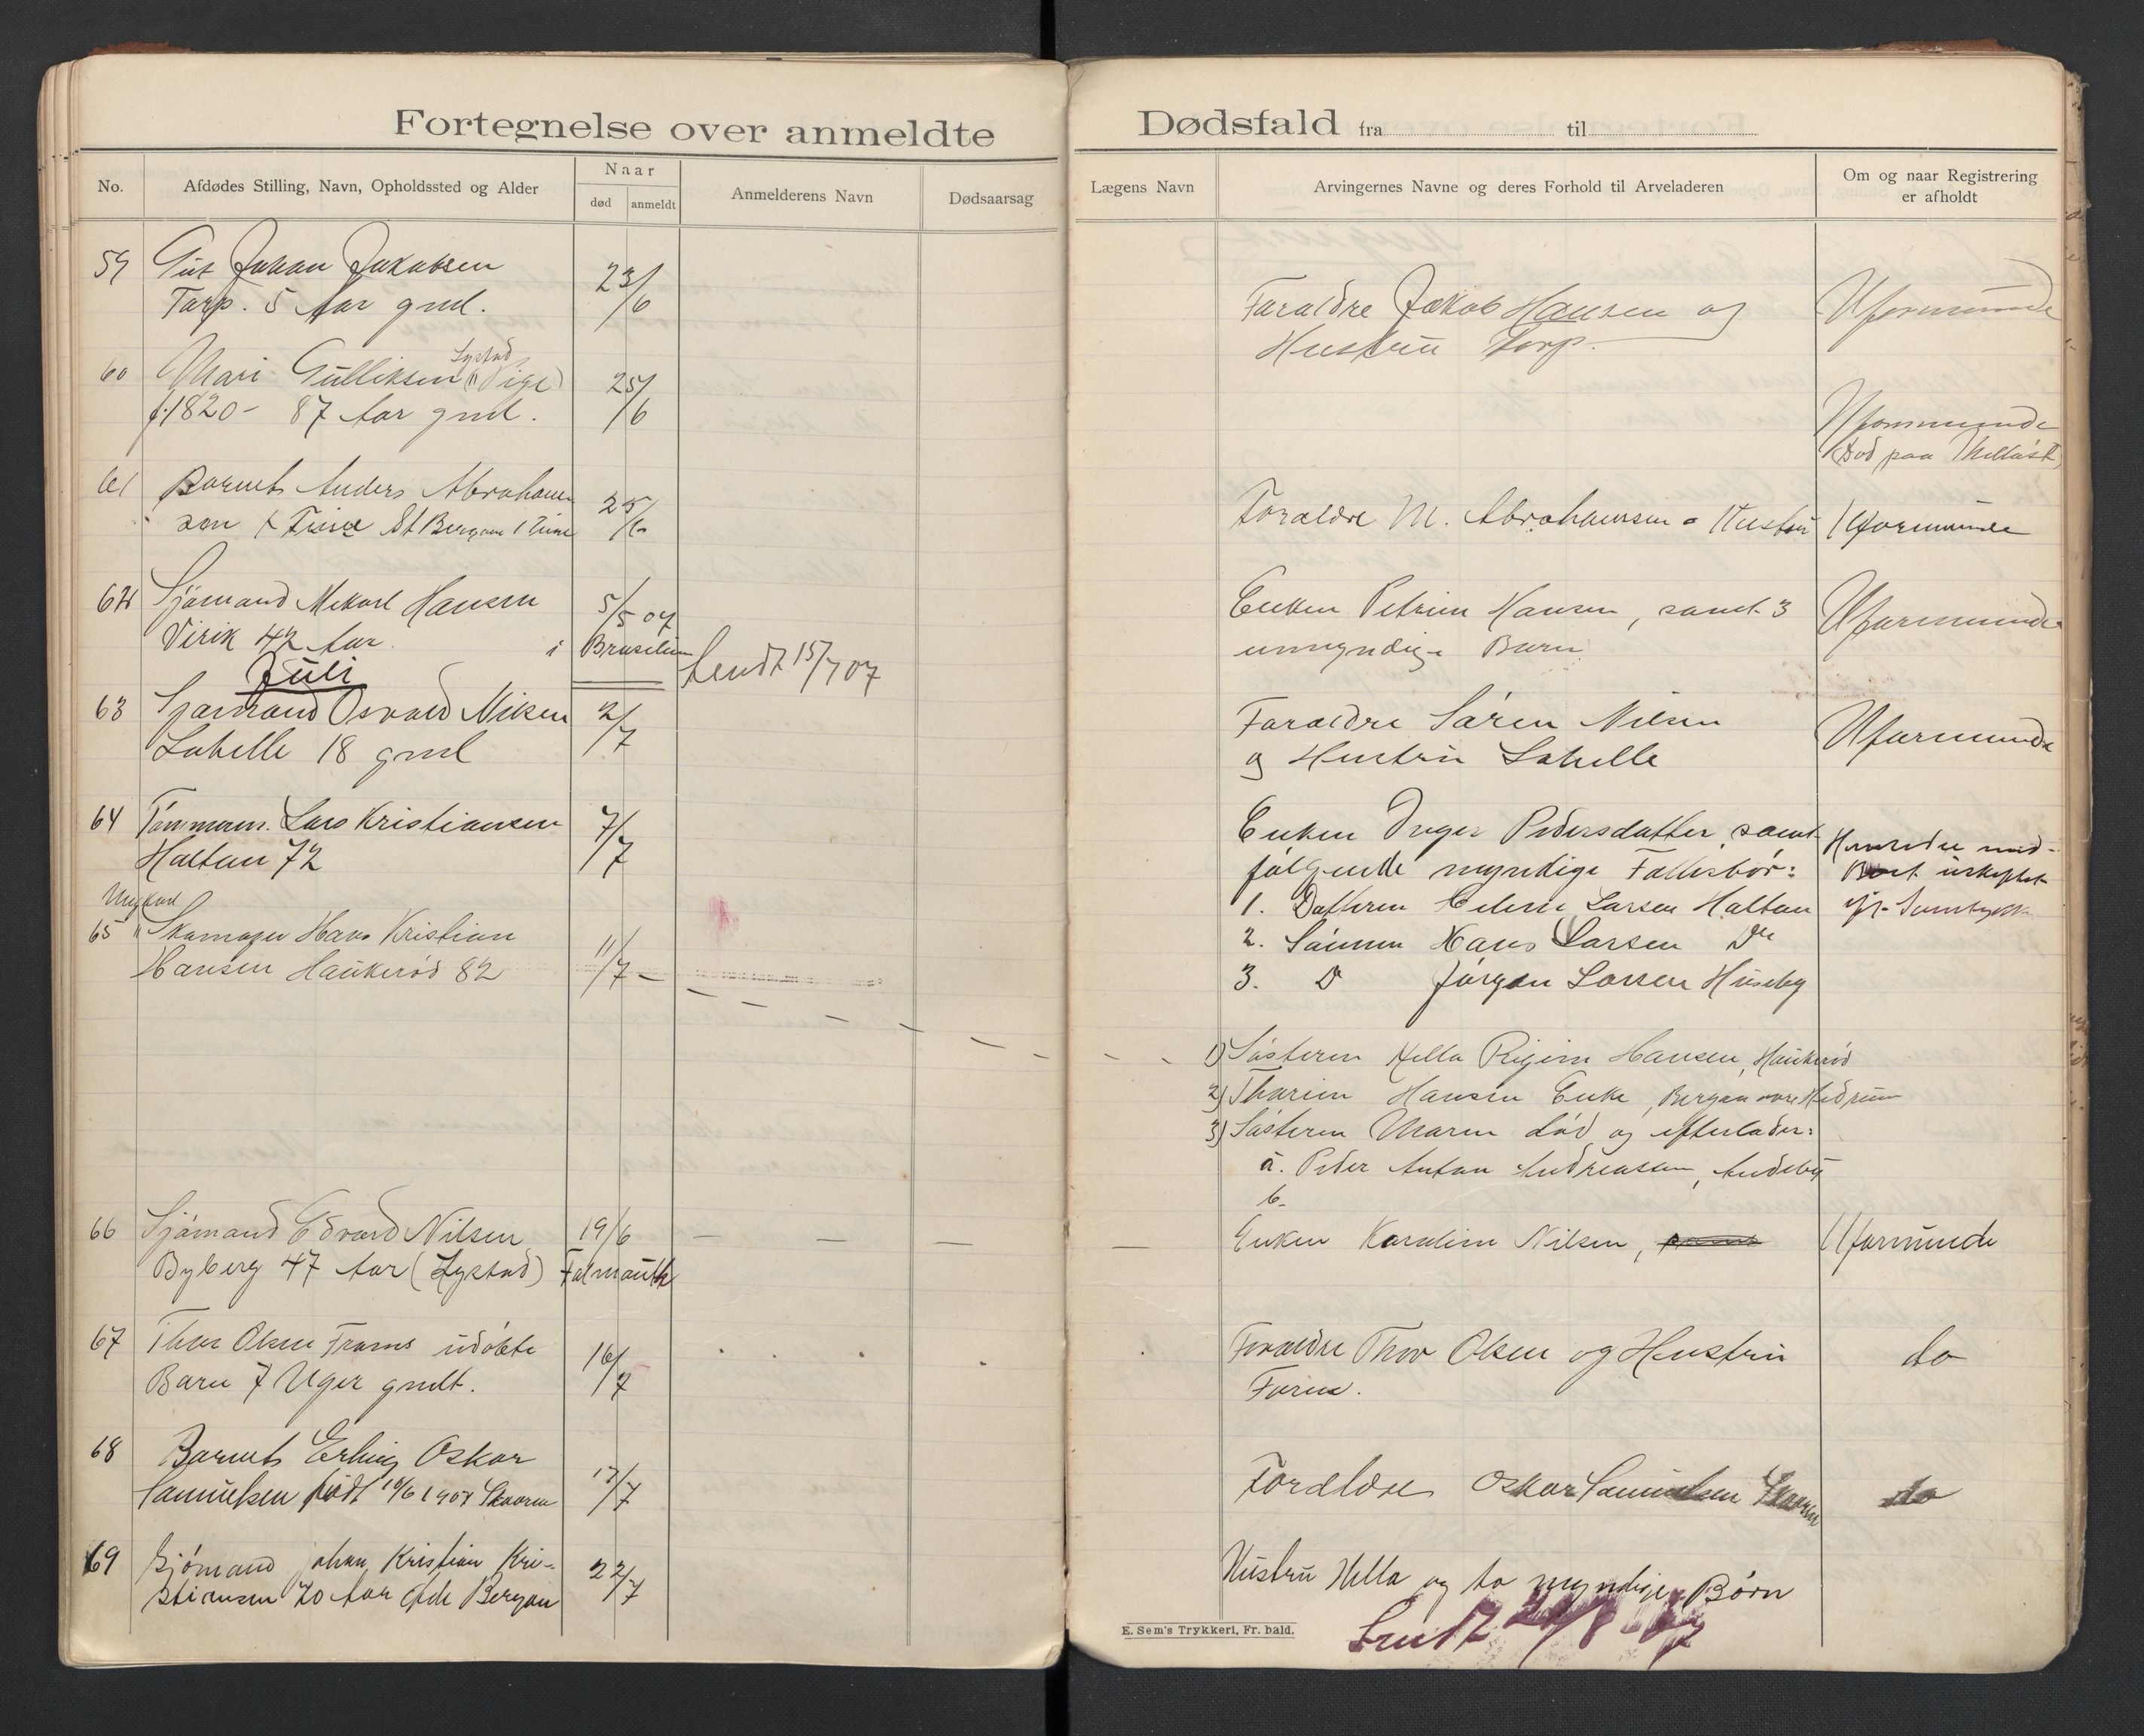 Fortegnelse over anmeldte
Dødsfald fra til
No.
Afdødes Stilling, Navn, Opholdssted og Alder
Naar
død
anmeldt
Anmelderens Navn
Dødsaarsag
Lægens Navn
Arvingernes Navne og deres Forhold til Arveladeren
Om og naar Registrering
er afholdt
59 Gut Johan Jakobsen 23/6
Torp. 5 Aar gml.
Forældre Jakob Hansen og
Hustru Torp.
Uformuende
60 Mari Gulliksen (Pige) 25/6
Lystad
f. 1820 - 87 Aar gml.
Uformuende
(Død paa
61 Barnet Anders Abraham 25/6
sen St Bergan 1 Time
Forældre M. Abrahamsen o Hustru
Uformuende
62 Sjømand Mikael Hansen 5/5 07
Virik 42 Aar i Brasilien
Sendt 15/7 07
Enken Petrine Hansen, samt 3
umyndige Børn
Uformuende
Juli
63 Sjømand Osvald Nilsen 2/7
Lahelle 18 gml
Forældre Søren Nilsen
og Hustru Lahelle
Uformuende
64 Tømmerm. Lars Kristiansen 7/7
Haltan 72
Enken Inger Pedersdatter, samt
følgende myndige Fællesbør:
1. Datteren Larsen Haltan
2. Sønnen Hans Larsen Do
3. Do Jørgen Larsen Huseby
Ungkarl
65 Skomager Hans Kristian 11/7
Hansen Haukerød 82
1) Søsteren Hella Rigine Hansen, Haukerød
2) Thorine Hansen Enke, Bergan Hedrum
3) Søsteren Maren død og efterlader:
a. Peder Anton Andreassen, Andebu
b.
66 Sjømand Edvard Nilsen 19/6
Byberg 47 Aar (Lystad) Falmouth
Enken Karoline Nilsen,
Uformuende
67 Thor Olsen Framnes udøbte 16/7
Barn 7 Uger gmlt.
Forældre Thor Olsen og Hustru
do
68 Barnet Erling Oskar 17/7
Samuelsen født 10/6 1907
Forældre Oskar Samuelsen
do
69 Sjømand Johan Kristian Kri- 22/7
stiansen 70 Aar Bergan
Hustru Hella og to myndige Børn
Sendt
E. Sem's Trykkeri, Fr. hald.